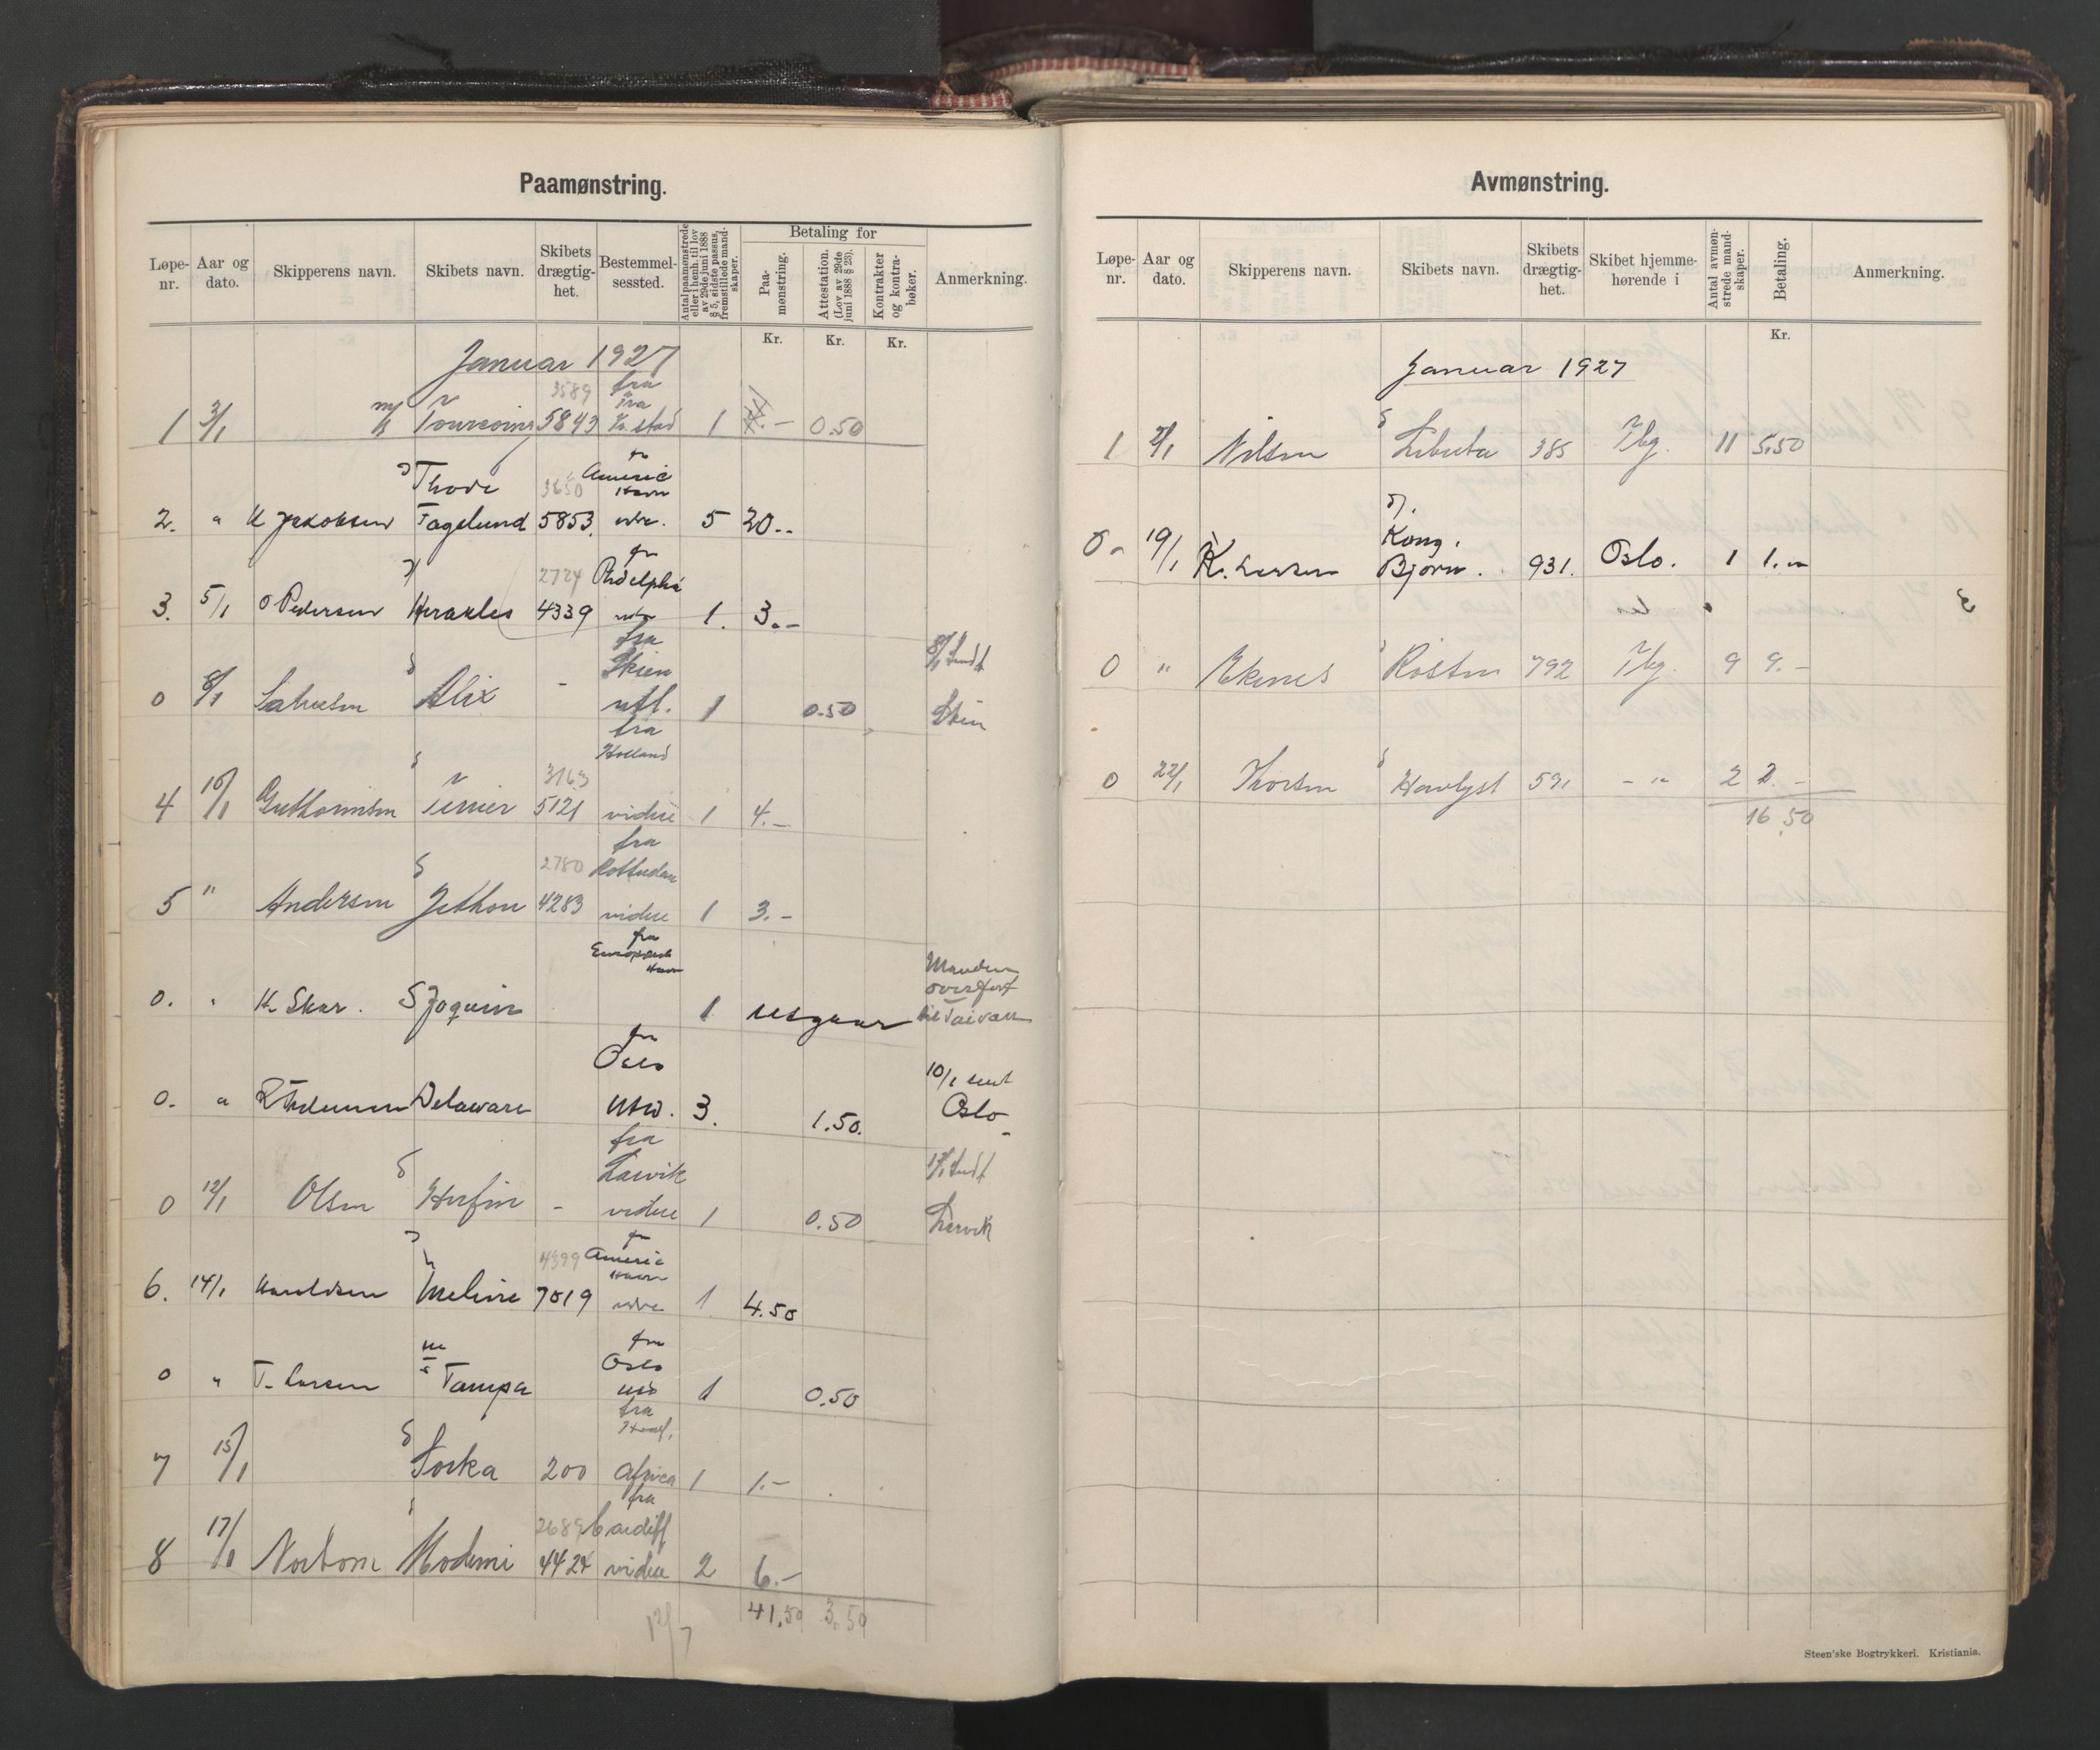 Paamønstring.
Løpe-nr. Aar og dato. Skipperens navn. Skibets navn. Skibets drægtig-het. Bestemmel-sessted. Antal paamønstrede eller i henh. til lov av 29de juni 1888 § 5, sidste passus, fremstillede mand-skaper. Betaling for Paa-mønstring. Attestation. (Lov av 29de juni 1888 § 23). Kontrakter og kontra-bøker. Anmerkning.
Kr. Kr. Kr.
Januar 1927
3589 fra
1 3/1 m/s Tourcoing 5843 Fr.stad 1 4.- 0.50
Thode 3650 fra Americ Havn
2. " K Jakobsen Fagelund 5853. vidre. 5 20.-
2724 fra
3. 5/1 O Pedersen Herakles 4339 vidre 1. 3.-
fra Skien 8/1 sendt
0 8/1 Alix - utl. 1 0.50 Skien
fra Holland
3163
4 10/1 Guthormsen Terrier 5121 videre 1 4.-
fra
S 2780 Rotterdam
5 " Andersen Jethou 4283 videre 1 3.-
fra Europæisk Havn
0. " K. Skar. S Joquin 1 utgaar Manden overført til Taiwan
fra Oslo 10/1 sent
0. " Delaware utl. 3. 1.50. Oslo
fra
S Larvik 13/1 sendt
0 12/1 Olsen - videre 1 0.50 Larvik
4399 fra Americ Havn
6. 14/1 Haraldsen Melvine 7019 vidre 1 4.50
m/s fra Oslo
0 " T. Larsen Tampa utl 1 0.50
fra
S
7 15/1 Sorka 200 Africa 1 1.-
fra
2689 Cardiff
8 17/1 Norbom Modemi 4424 videre 2 6.-
41,50 3,50
12/7
Avmønstring.
Løpe-nr. Aar og dato. Skipperens navn. Skibets navn. Skibets drægtig-het. Skibet hjemme-hørende i Antal avmøn-strede mand-skaper. Betaling. Anmerkning.
Kr.
Januar 1927
1 7/1 Nilsen S Libuta 385 Tbg. 11 5,50
Kong.
0. 19/1 K. Larsen Bjørn. 931. Oslo. 1 1.-
0 " Ekenes Rosten 792 Tbg. 9 9.-
0 22/1 Thorsen S Havlyst 591 - " - 2 2.-
16,50
Steen'ske Bogtrykkeri. Kristiania.